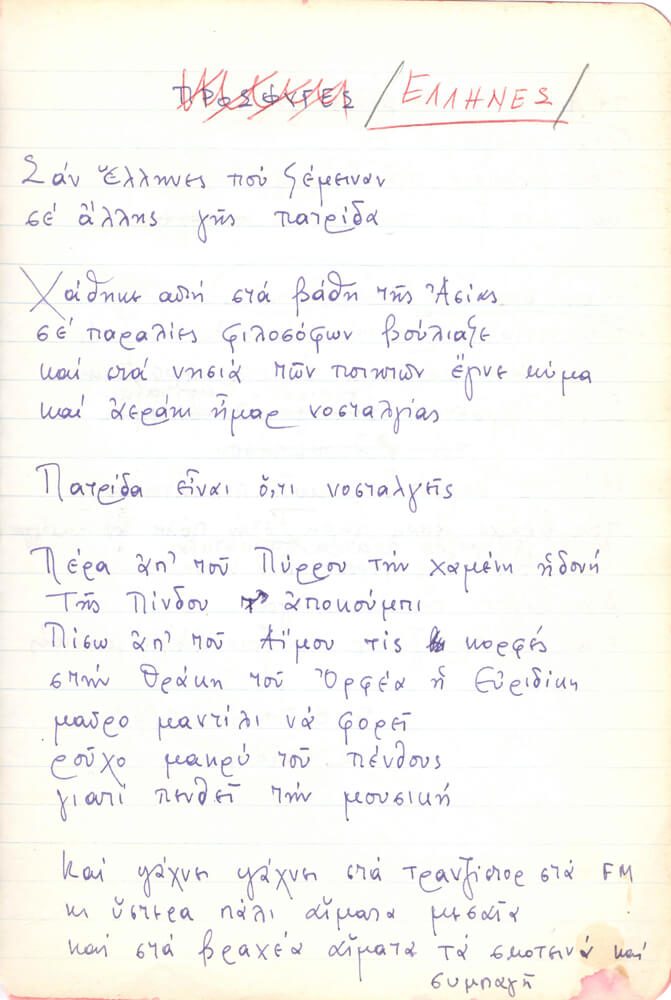 ΠΡΟΣΦΥΓΕΣ / ΕΛΛΗΝΕΣ /
Σάν Ἕλληνες πού ξέμειναν
σέ ἄλλης γῆς πατρίδα
Χάθηκε αὐτή στά βάθη τῆς Ἀσίας
σέ παραλίες φιλοσόφων βούλιαξε
καί στά νησιά τῶν ποιητῶν ἔγινε κύμα
καί ἀεράκι ἦμαρ νοσταλγίας
Πατρίδα εἶναι ὅ,τι νοσταλγεῖς
Πέρα ἀπ' τοῦ Πύρρου τήν χαμένη ἡδονή
Τῆς Πίνδου τ' ἀποκούμπι
Πίσω ἀπ' τοῦ Αἵμου τίς κορφές
στήν Θράκη τοῦ Ὀρφέα ἡ Εὐριδίκη
μαῦρο μαντίλι νά φορεῖ
ροῦχο μακρύ τοῦ πένθους
γιατί πενθεῖ τήν μουσική
Καί ψάχνει ψάχνει στά τρανζίστορ στά FM
κι ὕστερα πάλι αἵματα μεσαῖα
καί στά βραχέα αἵματα τά σκοτεινά καί
συμπαγῆ